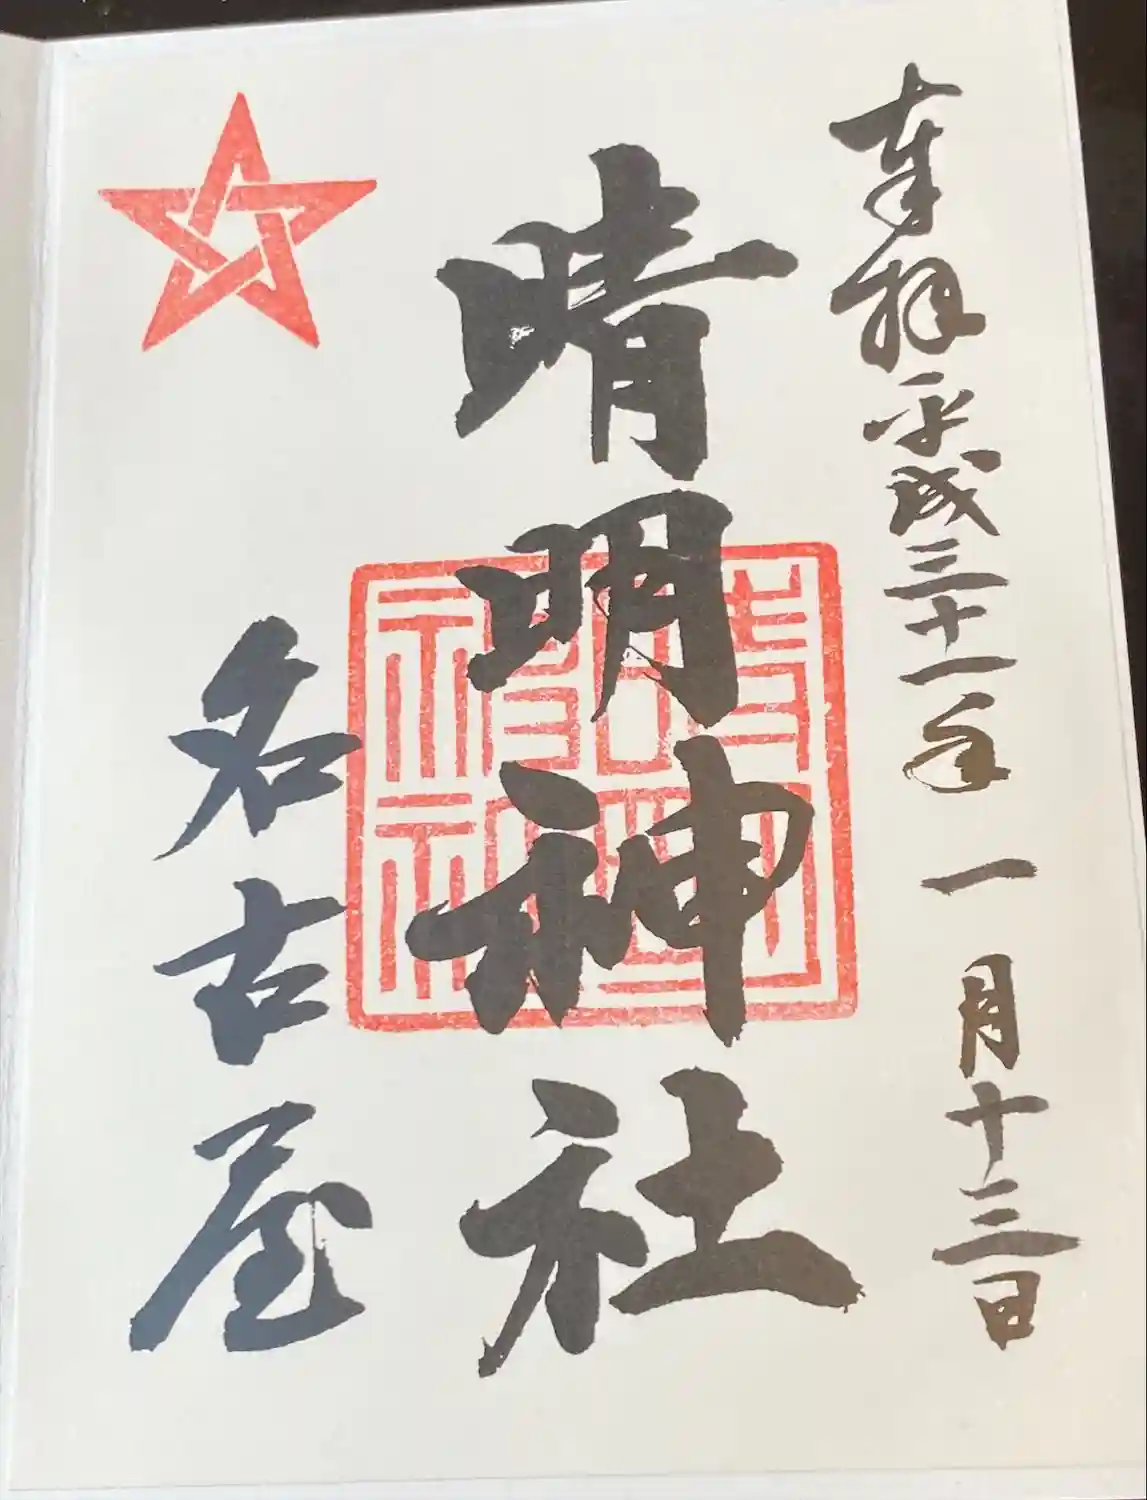 奉拝 平成三十一年 一月十三日
晴明神社
名古屋
晴明神社